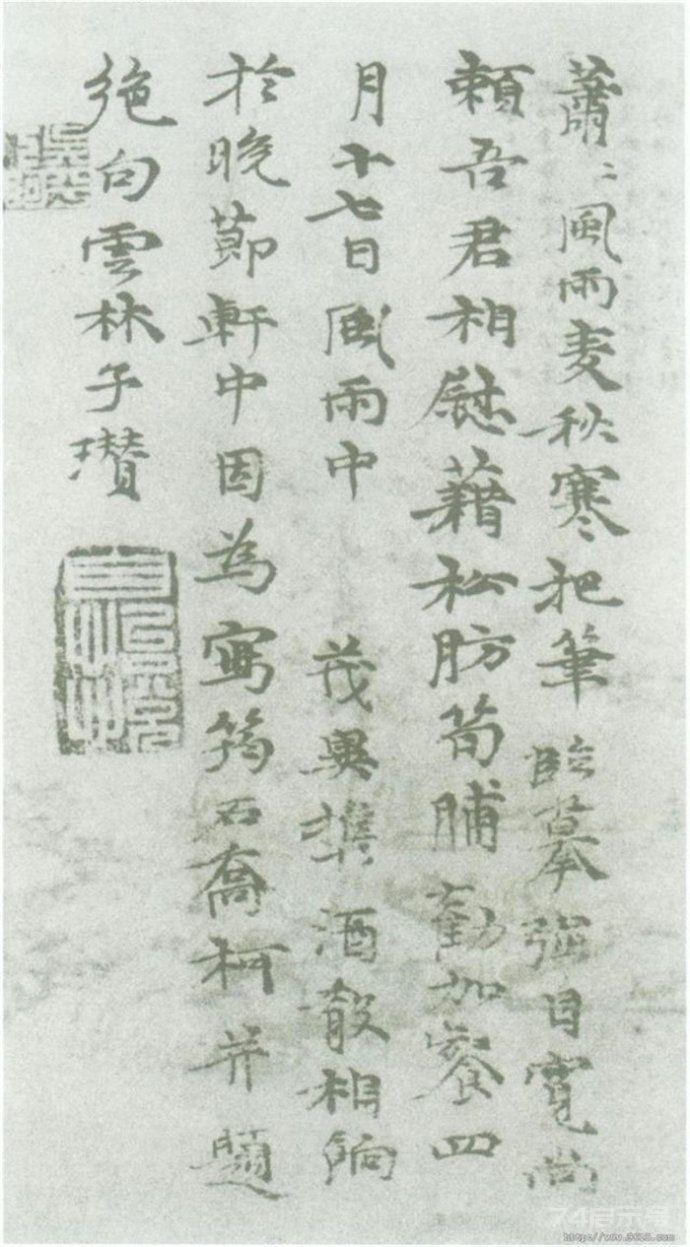 蕭〻風雨麦秋寒把筆臨摹强自寬尚
賴吾君相慰藉松肪筍脯勸加餐四
月十七日風雨中 茂異攜酒殽相餉
於晚節軒中因為寫筠石喬柯并題
絶句雲林子瓚
http://www.9610.com